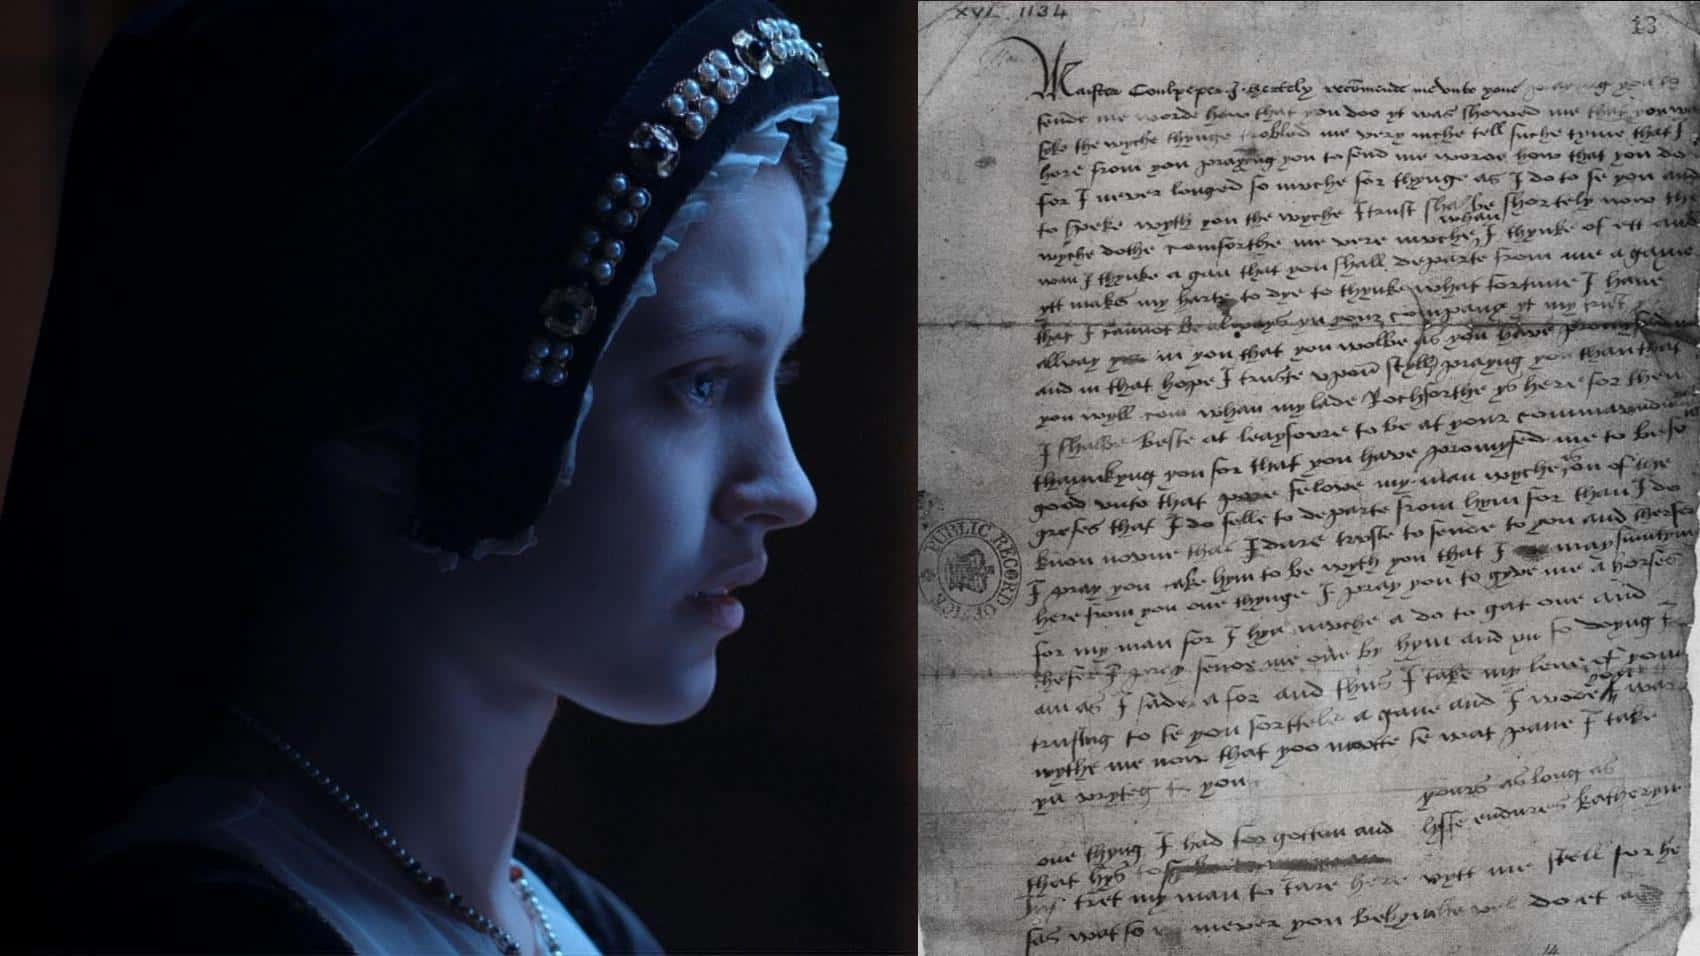 XVI. 1134
13
Maister Coulpeper I hertely recomende me vnto youe praying you to
sende me worde how that you doo yt was showed me that you was
syke the wyche thynge trobled me very muche tell suche tyme that I
here from you praying you to send me worde how that you do
for I never longed so muche for thynge as I do to se you and
to speke wyth you the wyche I trust shal be shortely now the
wyche dothe comforthe me verie muche whan I thynke of ett and
wan I thynke a gan that you shall departe from me a gane
ytt makes my harte to dye to thynke what fortune I have
that I cannot be always yn your company yt my trust
allway in you that you wolbe as you have promysed me
and in that hope I truste vpon styll prayng you than that
you wyll com whan my lade Rochforthe ys here for then
I shalbe beste at leaysoure to be at your commaundmant
thaynkyng you for that you have promysed me to be so
good vnto that pore felowe my man wyche is on of the
grefes that I do felle to departe from hym for than I do
know noone that I dare truste to sende to you and therfor
I pray you take hym to be wyth you that I may sumtym
here from you one thynge I pray you to gyve me a horsse
for my man for I hyd muche a do to gat one and
thefer I pray sende me one by hym and yn so doyng I
am as I sade afor and thus I take my leve of you
trusting to se you shorttele a gane and I wode you was
wythe me now that yoo maitte se wat pane I take
yn wryteg to you
yours as long as
lyffe endures Katheryn
one thyng I had for gotten and
that hys to
my man to tare here wytt me still for he
sas wat so mever you bed hym he wel do et and
14
PUBLIC RECORD OFFICE